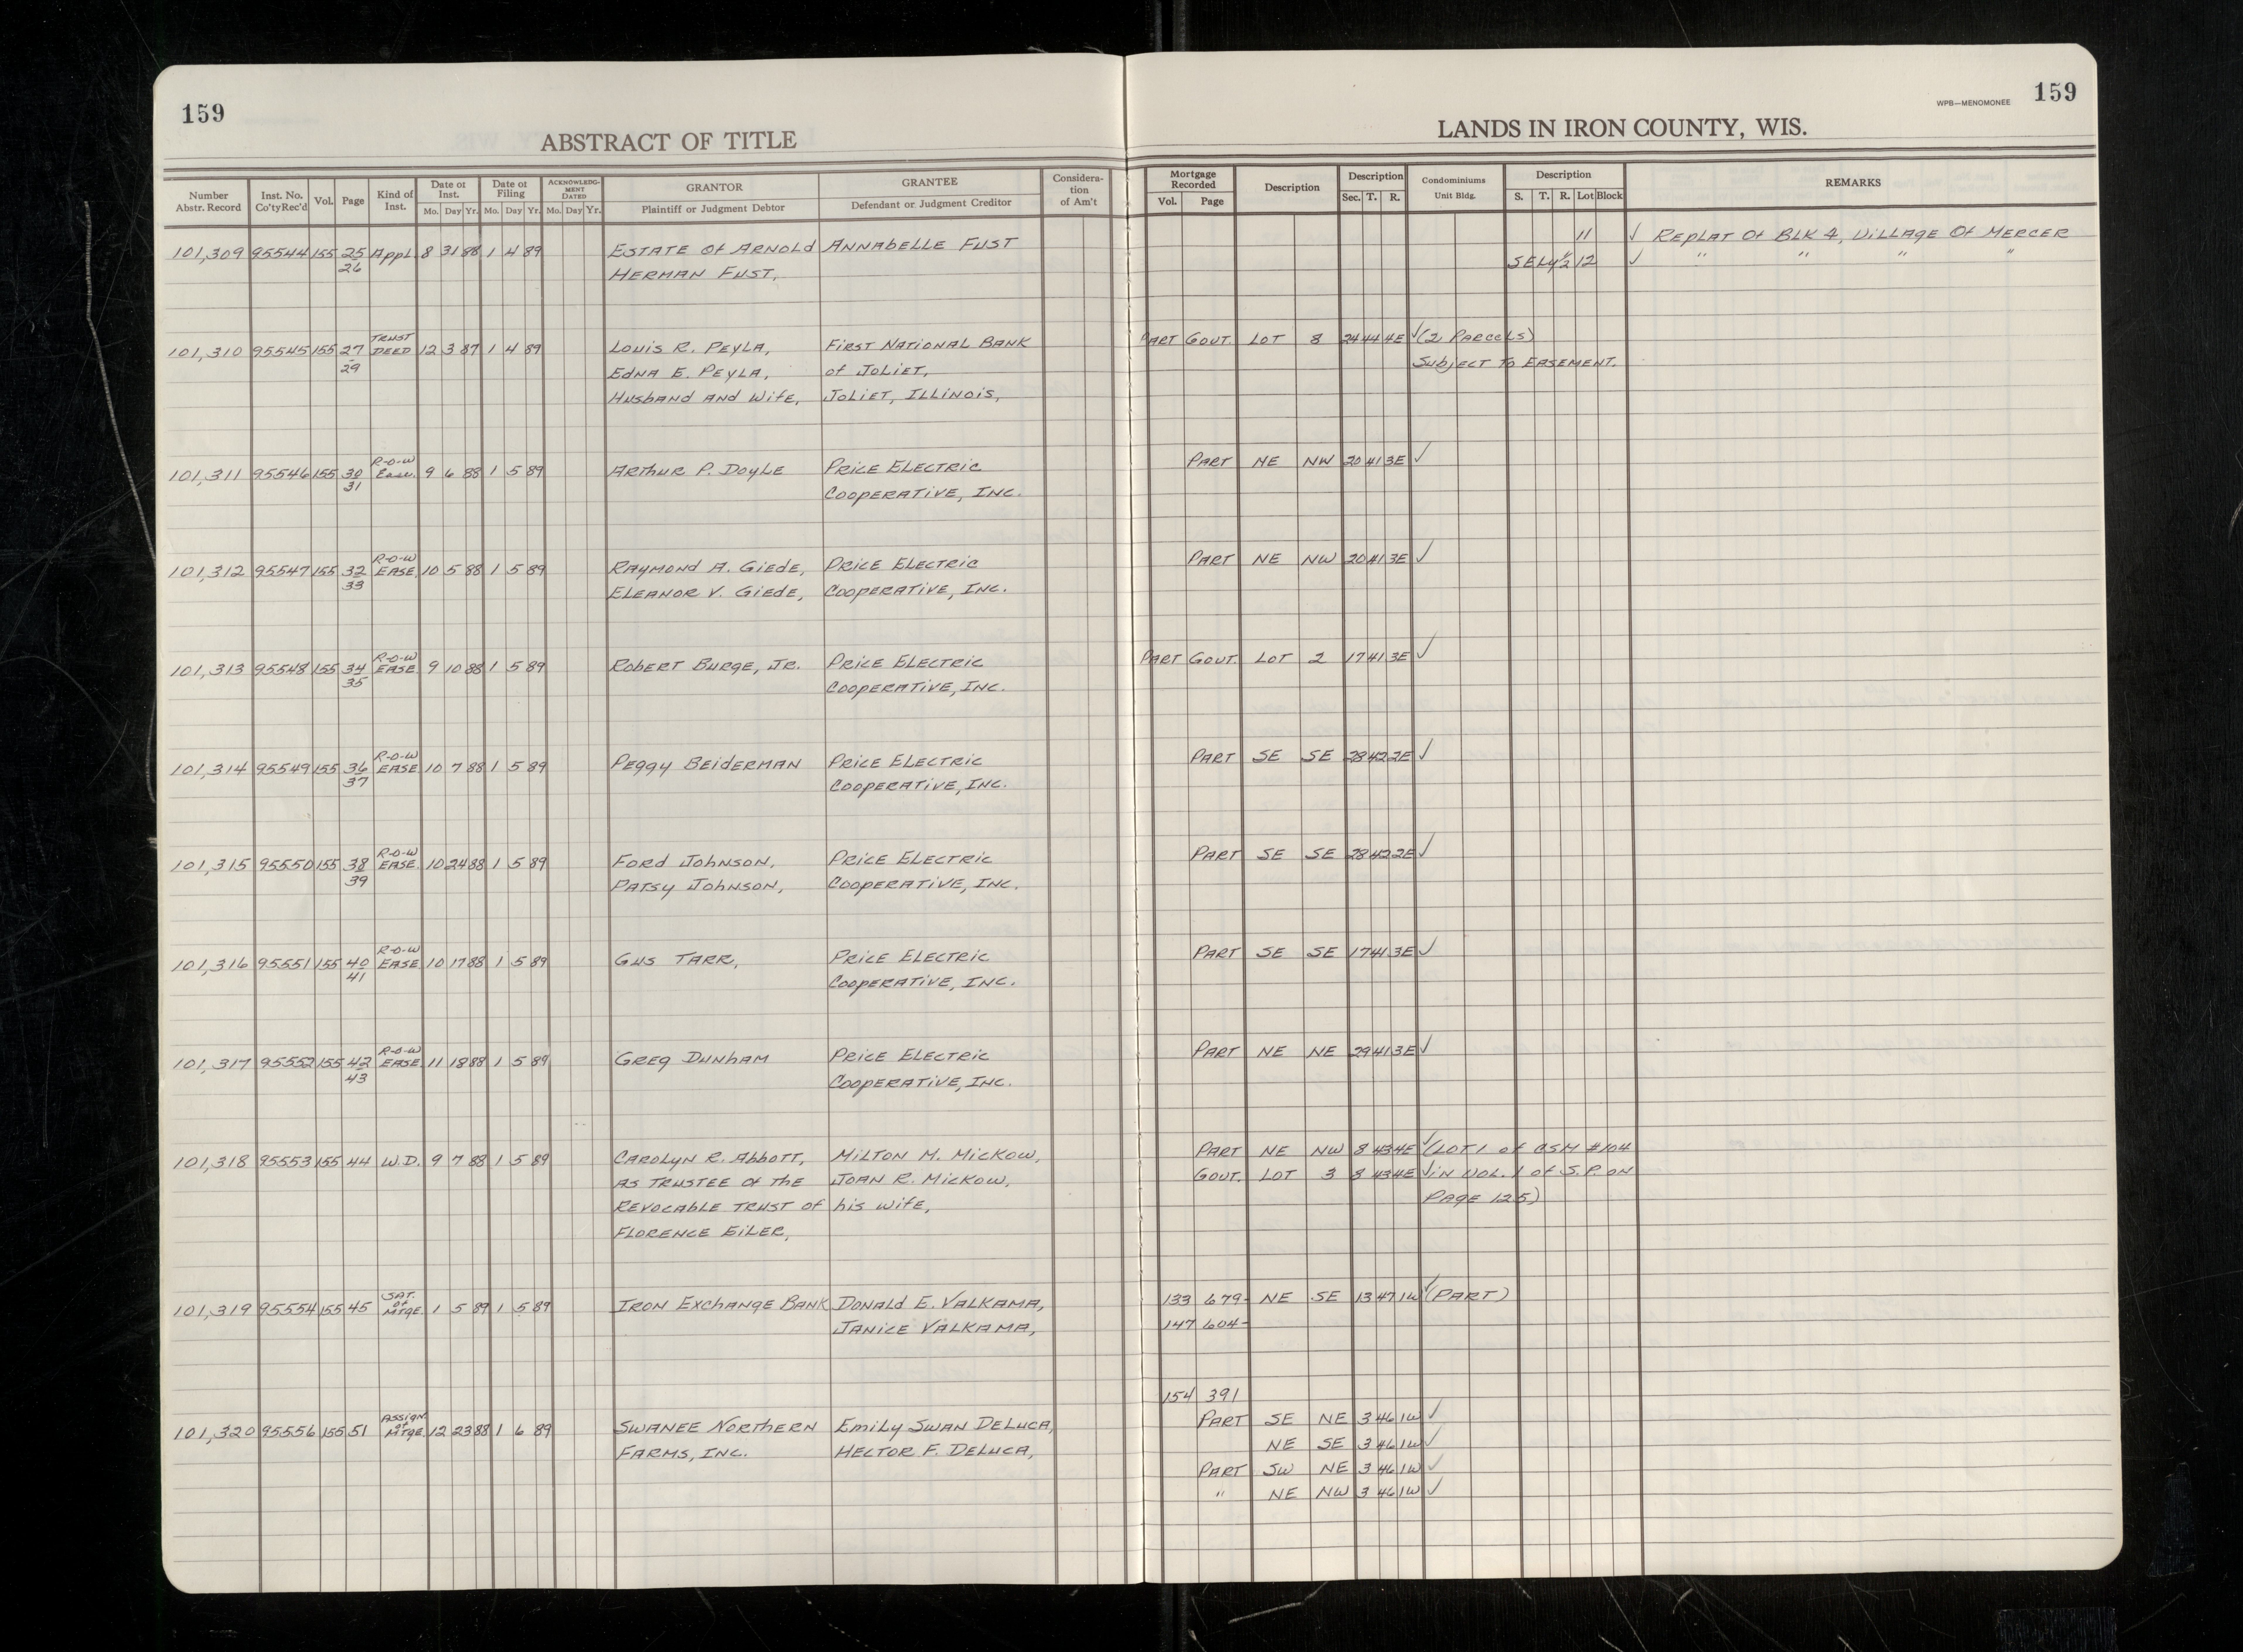 159
ABSTRACT OF TITLE
LANDS IN IRON COUNTY, WIS.
WPB—MENOMONEE 159
Number Abstr. Record Inst. No. Co'ty Rec'd Vol. Page Kind of Inst. Date of Inst. Mo. Day Yr. Date of Filing Mo. Day Yr. ACKNOWLEDGMENT DATED Mo. Day Yr. GRANTOR Plaintiff or Judgment Debtor GRANTEE Defendant or Judgment Creditor Consideration of Am't Mortgage Recorded Vol. Page Description Description Sec. T. R. Condominiums Unit Bldg. Description S. T. R. Lot Block REMARKS
101,309 95544 155 25 Appl 8 31 88 1 4 89 ESTATE Of ARNOLD ANNABELLE FUST 11 ✓ REPLAT Of BLK 4, VILLAGE Of MERCER
26 HERMAN FUST, SELY ½ 12 ✓ " " " "
101,310 95545 155 27 TRUST DEED 12 3 87 1 4 89 LOUIS R. PEYLA, FIRST NATIONAL BANK PART GOUT LOT 8 24 44 4E ✓ (2 PARCELS)
29 EDNA E. PEYLA, of JOLIET, SUBJECT TO EASEMENT.
HUSBAND AND WIFE, JOLIET, ILLINOIS,
101,311 95546 155 30 R-O-W Ease. 9 6 88 1 5 89 ARTHUR P. DOYLE PRICE ELECTRIC PART NE NW 20 41 3E ✓
31 COOPERATIVE, INC.
101,312 95547 155 32 R-O-W EASE 10 5 88 1 5 89 RAYMOND A. GIEDE, PRICE ELECTRIC PART NE NW 20 41 3E ✓
33 ELEANOR V. GIEDE, COOPERATIVE, INC.
101,313 95548 155 34 R-O-W EASE 9 10 88 1 5 89 ROBERT BURGE, JR. PRICE ELECTRIC PART GOUT. LOT 2 17 41 3E ✓
35 COOPERATIVE, INC.
101,314 95549 155 36 R-O-W EASE 10 7 88 1 5 89 PEGGY BEIDERMAN PRICE ELECTRIC PART SE SE 28 42 2E ✓
37 COOPERATIVE, INC.
101,315 95550 155 38 R-O-W EASE 10 24 88 1 5 89 FORD JOHNSON, PRICE ELECTRIC PART SE SE 28 42 2E ✓
39 PATSY JOHNSON, COOPERATIVE, INC.
101,316 95551 155 40 R-O-W EASE 10 17 88 1 5 89 GUS TARR, PRICE ELECTRIC PART SE SE 17 41 3E ✓
41 COOPERATIVE, INC.
101,317 95552 155 42 R-O-W EASE 11 18 88 1 5 89 GREG DUNHAM PRICE ELECTRIC PART NE NE 29 41 3E ✓
43 COOPERATIVE, INC.
101,318 95553 155 44 W.D. 9 7 88 1 5 89 CAROLYN R. ABBOTT, MILTON M. MICKOW, PART NE NW 8 43 4E ✓ (LOT 1 of CSM #104
AS TRUSTEE Of THE JOAN R. MICKOW, GOUT. LOT 3 8 43 4E ✓ IN VOL. 1 of S.P. ON
REVOCABLE TRUST OF his WIFE, PAGE 125)
FLORENCE EILER,
101,319 95554 155 45 SAT. of MTGE 1 5 89 1 5 89 IRON EXCHANGE BANK DONALD E. VALKAMA, 133 679- NE SE 13 47 1W ✓ (PART)
JANICE VALKAMA, 147 604-
154 391
101,320 95556 155 51 ASSIGN of MTGE 12 23 88 1 6 89 SWANEE NORTHERN EMILY SWAN DELUCA, PART SE NE 3 46 1W ✓
FARMS, INC. HECTOR F. DELUCA, NE SE 3 46 1W ✓
PART SW NE 3 46 1W ✓
" NE NW 3 46 1W ✓